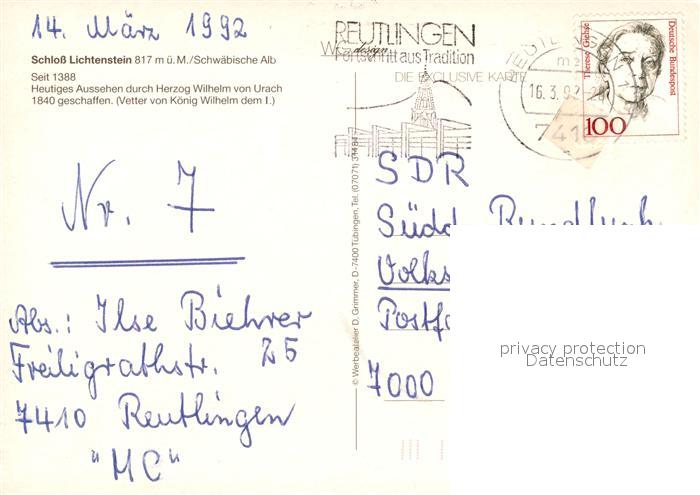 14. März 1992
Schloß Lichtenstein 817 m ü. M./Schwäbische Alb
Seit 1388
Heutiges Aussehen durch Herzog Wilhelm von Urach
1840 geschaffen. (Vetter von König Wilhelm dem I.)
Nr. 7
Abs.: Ilse Biehrer
Freiligrathstr. 25
7410 Reutlingen
"MC"
© Werbeatelier D. Grimmer, D-7400 Tübingen, Tel. (07071) 31484
REUTLINGEN
Fortschritt aus Tradition
design
DIE EXCLUSIVE KARTE
16.3.92
7410
Therese Giehse
Deutsche Bundespost
100
SDR
Südd. Rundfunk
Volks
Postf
7000
privacy protection
Datenschutz